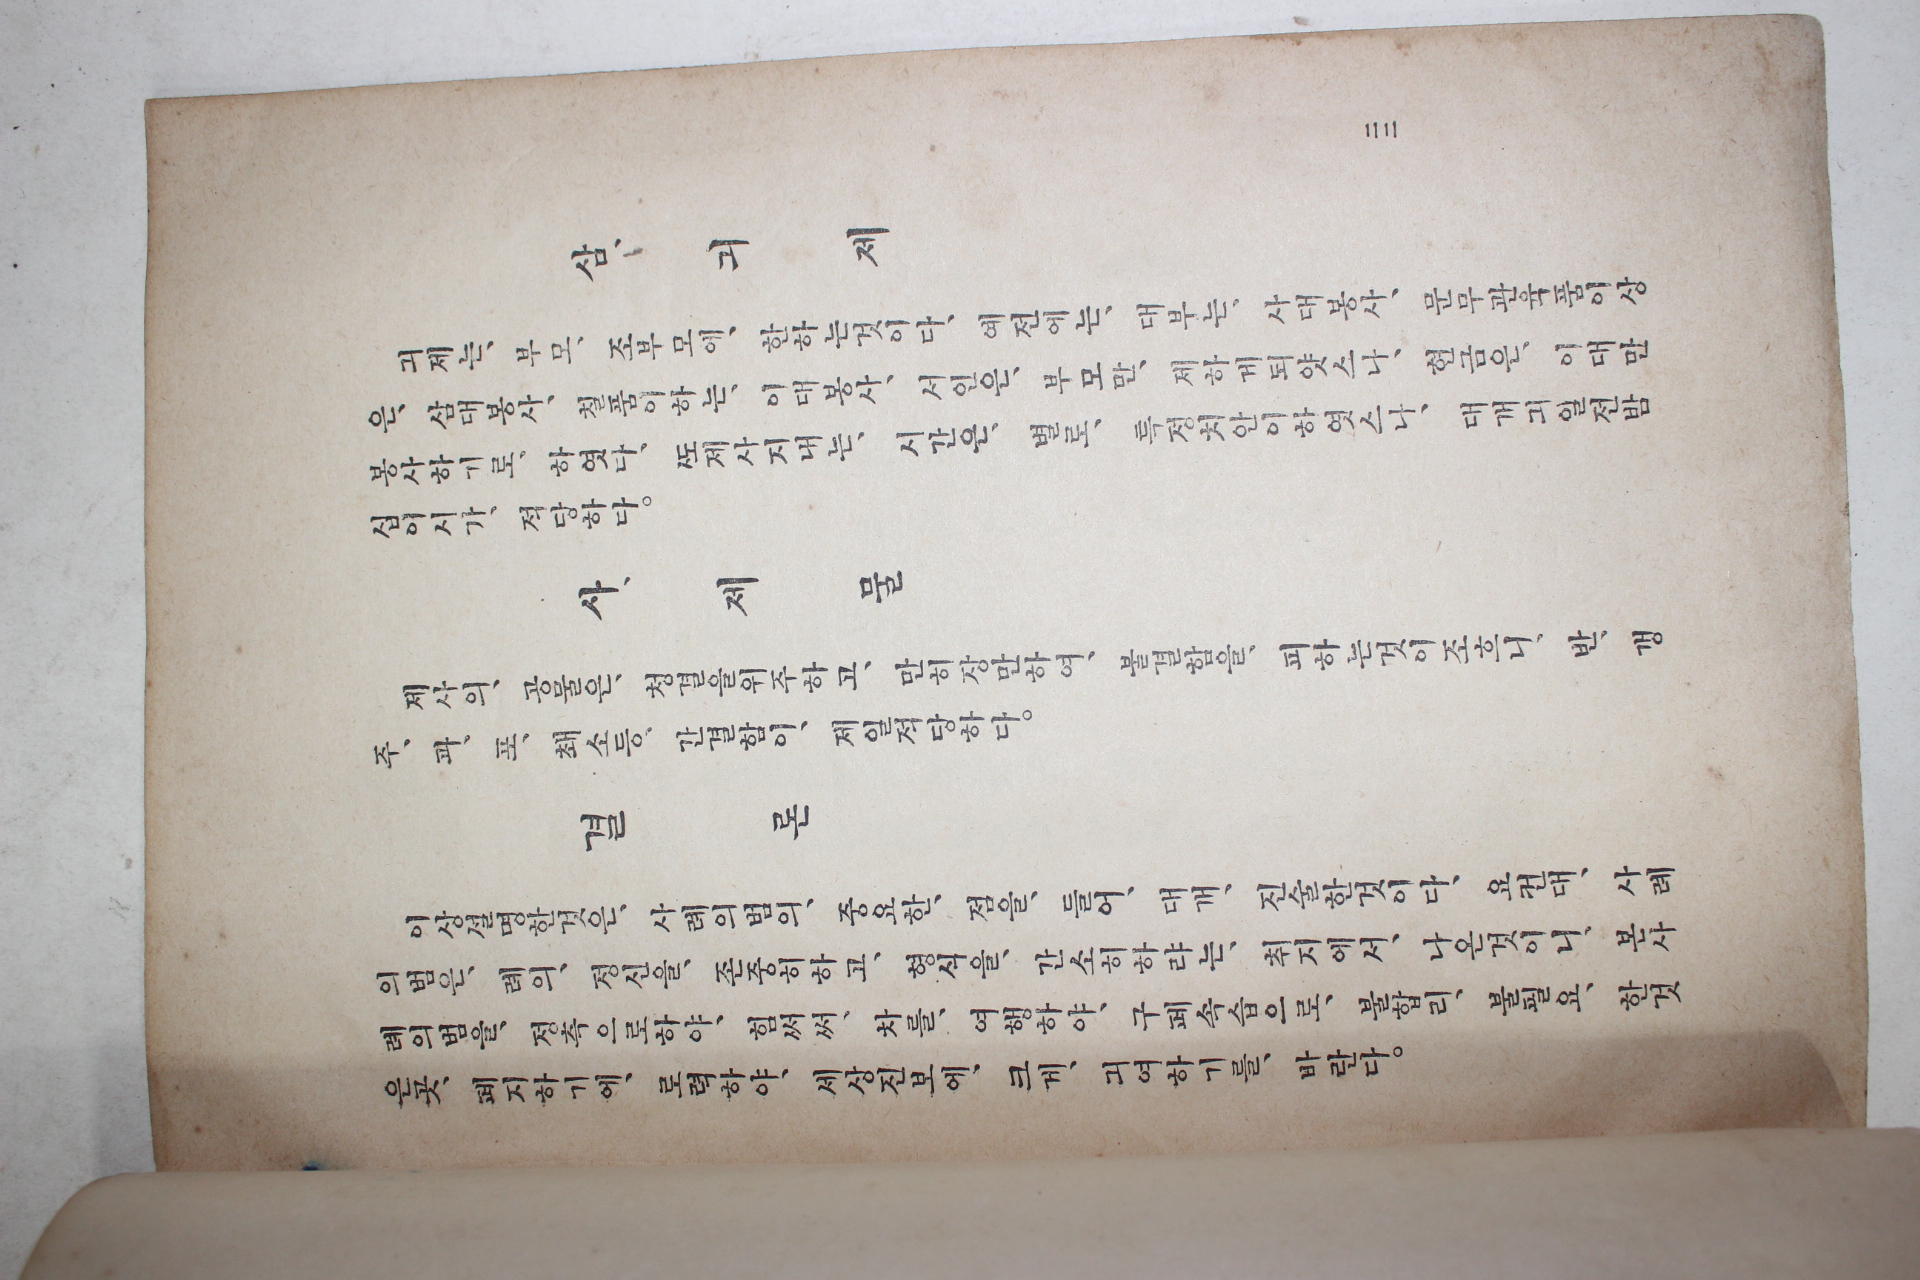 三三
삼、긔제
긔제는、부모、조부모에、한하는것이다、예전에는、대부는、사대봉사、문무관육품이상
은、삼대봉사、칠품이하는、이대봉사、서인은、부모만、제하게되얏스나、현금은、이대만
봉사하기로、하엿다、ᄯᅩ제사지내는、시간은、별로、특정치안이하엿스나、대개긔일전밤
십이시가、적당하다。
사、제물
제사의、공물은、청결을위주하고、만히장만하여、불결함을、피하는것이조흐니、반、갱
주、과、포、채소등、간결함이、제일적당하다。
결론
이상설명한것은、사례의범의、중요한、점을、들어、대개、진술한것이다、요컨대、사례
의범은、례의、정신을、존중히하고、형식을、간소히하랴는、취지에서、나온것이니、본사
례의범을、정측으로하야、힘써써、차를、여행하야、구폐속습으로、불합리、불필요、한것
은곳、폐지하기에、로력하야、세상진보에、크게、긔여하기를、바란다。